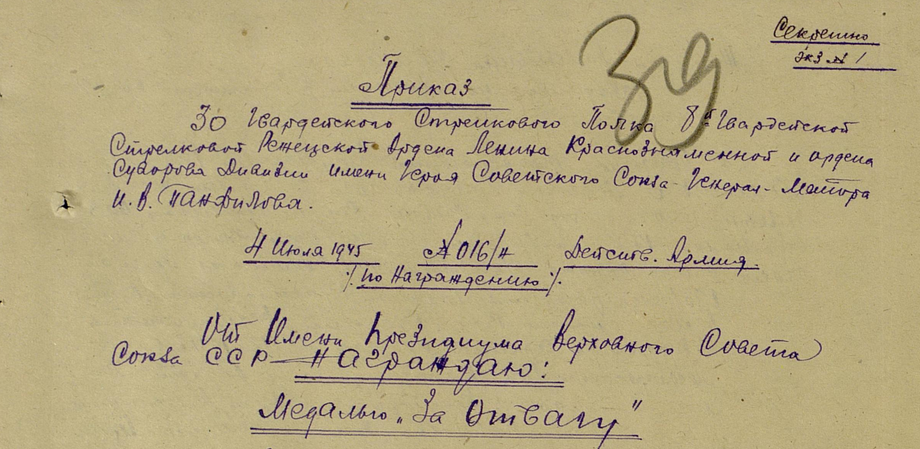 Секретно
экз № 1
39
Приказ
30 Гвардейского Стрелкового Полка 8й Гвардейской
Стрелковой Режецкой Ордена Ленина Краснознаменной и ордена
Суворова Дивизии имени Героя Советского Союза - Генерал-Майора
И. В. Панфилова.
4 Июля 1945 №016/н Действ. Армия.
% по Награждению %
От Имени Президиума Верховного Совета
Союза ССР - Награждаю:
Медалью „За Отвагу"